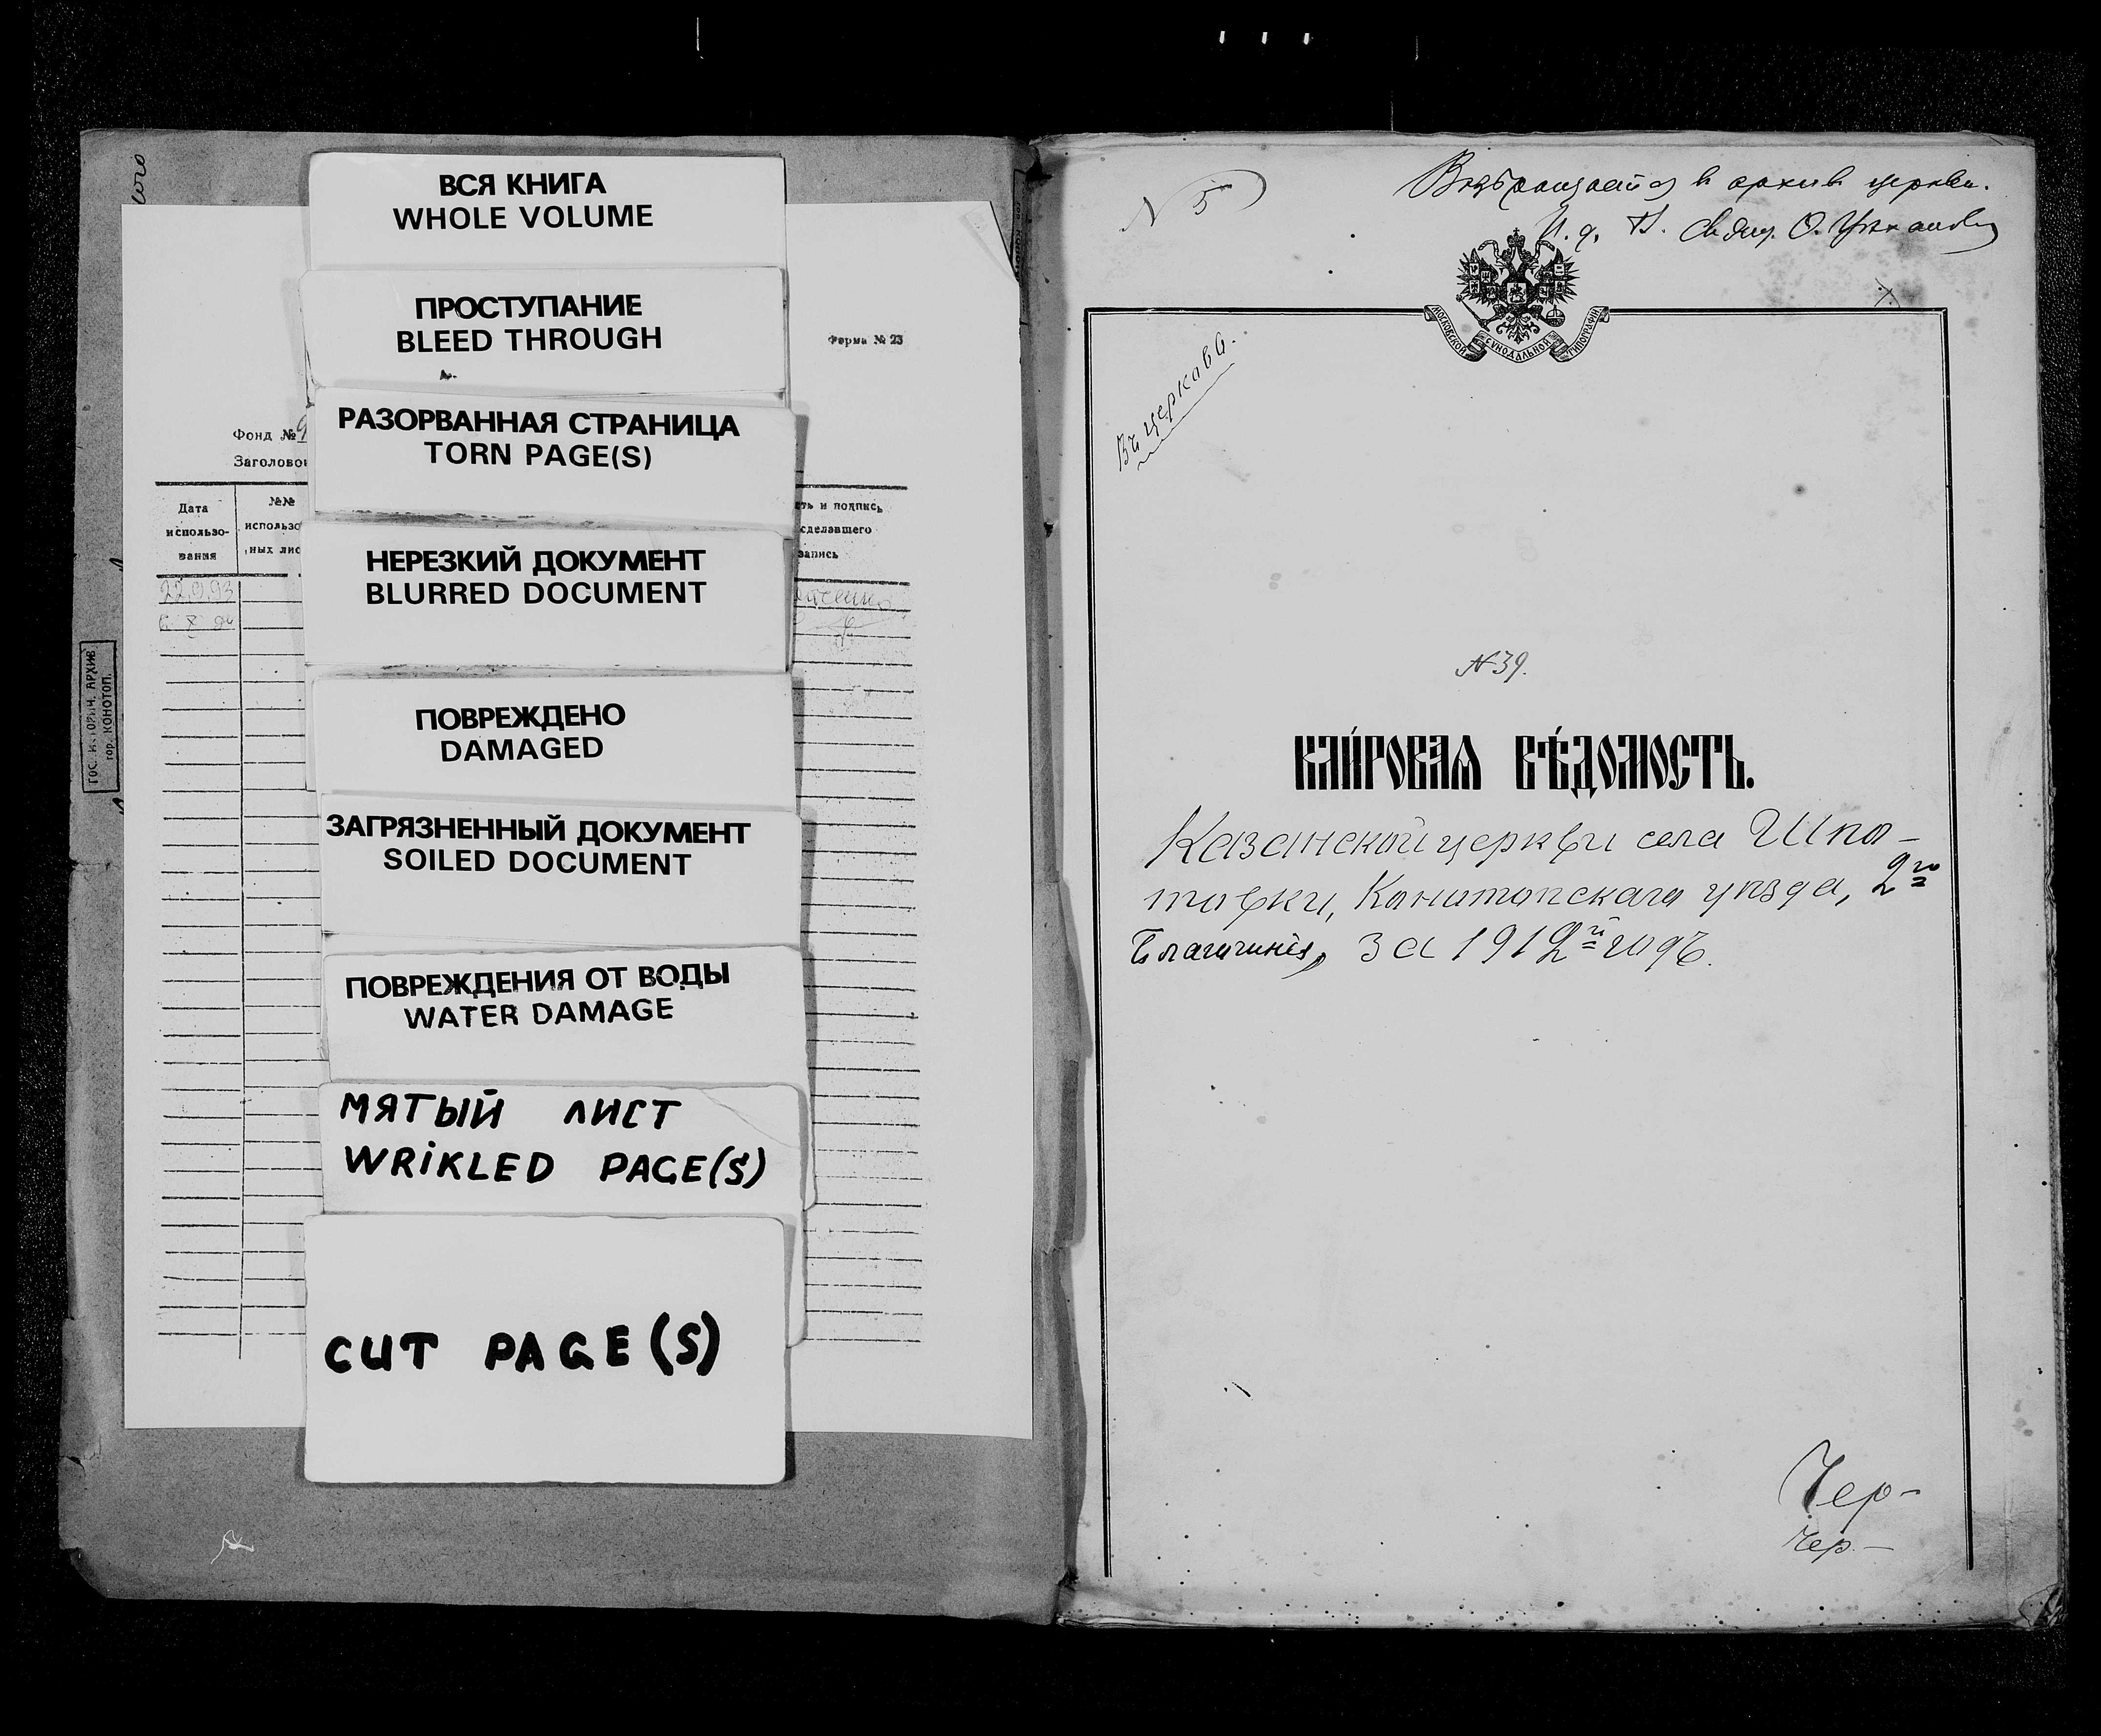 ВСЯ КНИГА
WHOLE VOLUME
ПРОСТУПАНИЕ
BLEED THROUGH
РАЗОРВАННАЯ СТРАНИЦА
TORN PAGE(S)
НЕРЕЗКИЙ ДОКУМЕНТ
BLURRED DOCUMENT
ПОВРЕЖДЕНО
DAMAGED
ЗАГРЯЗНЕННЫЙ ДОКУМЕНТ
SOILED DOCUMENT
ПОВРЕЖДЕНИЯ ОТ ВОДЫ
WATER DAMAGE
МЯТЫЙ ЛИСТ
WRiKLED PAGE(S)
CUT PAGE(S)
Форма № 23
Фонд №
Заголово
Дата
использо-
вания
№№
использо
ных лис
ть и подпись
сделавшего
запись
22.9.93
ГОС. ИСТОРИЧ. АРХИВ
гор. КОНОТОП.
N 5
Возвращается в архив церкви.
И. д.
МОСКОВСКОЙ СѴНОДАЛЬНОЙ ТИПОГРАФІИ
Въ церковь.
N 39.
КЛИ́РОВАЯ ВѢ́ДОМОСТЬ.
Казанской церкви села Шпо-
товки, Конотопскаго уѣзда, 2го
Благочинія, за 1912й годъ.
Чер-
Чер-